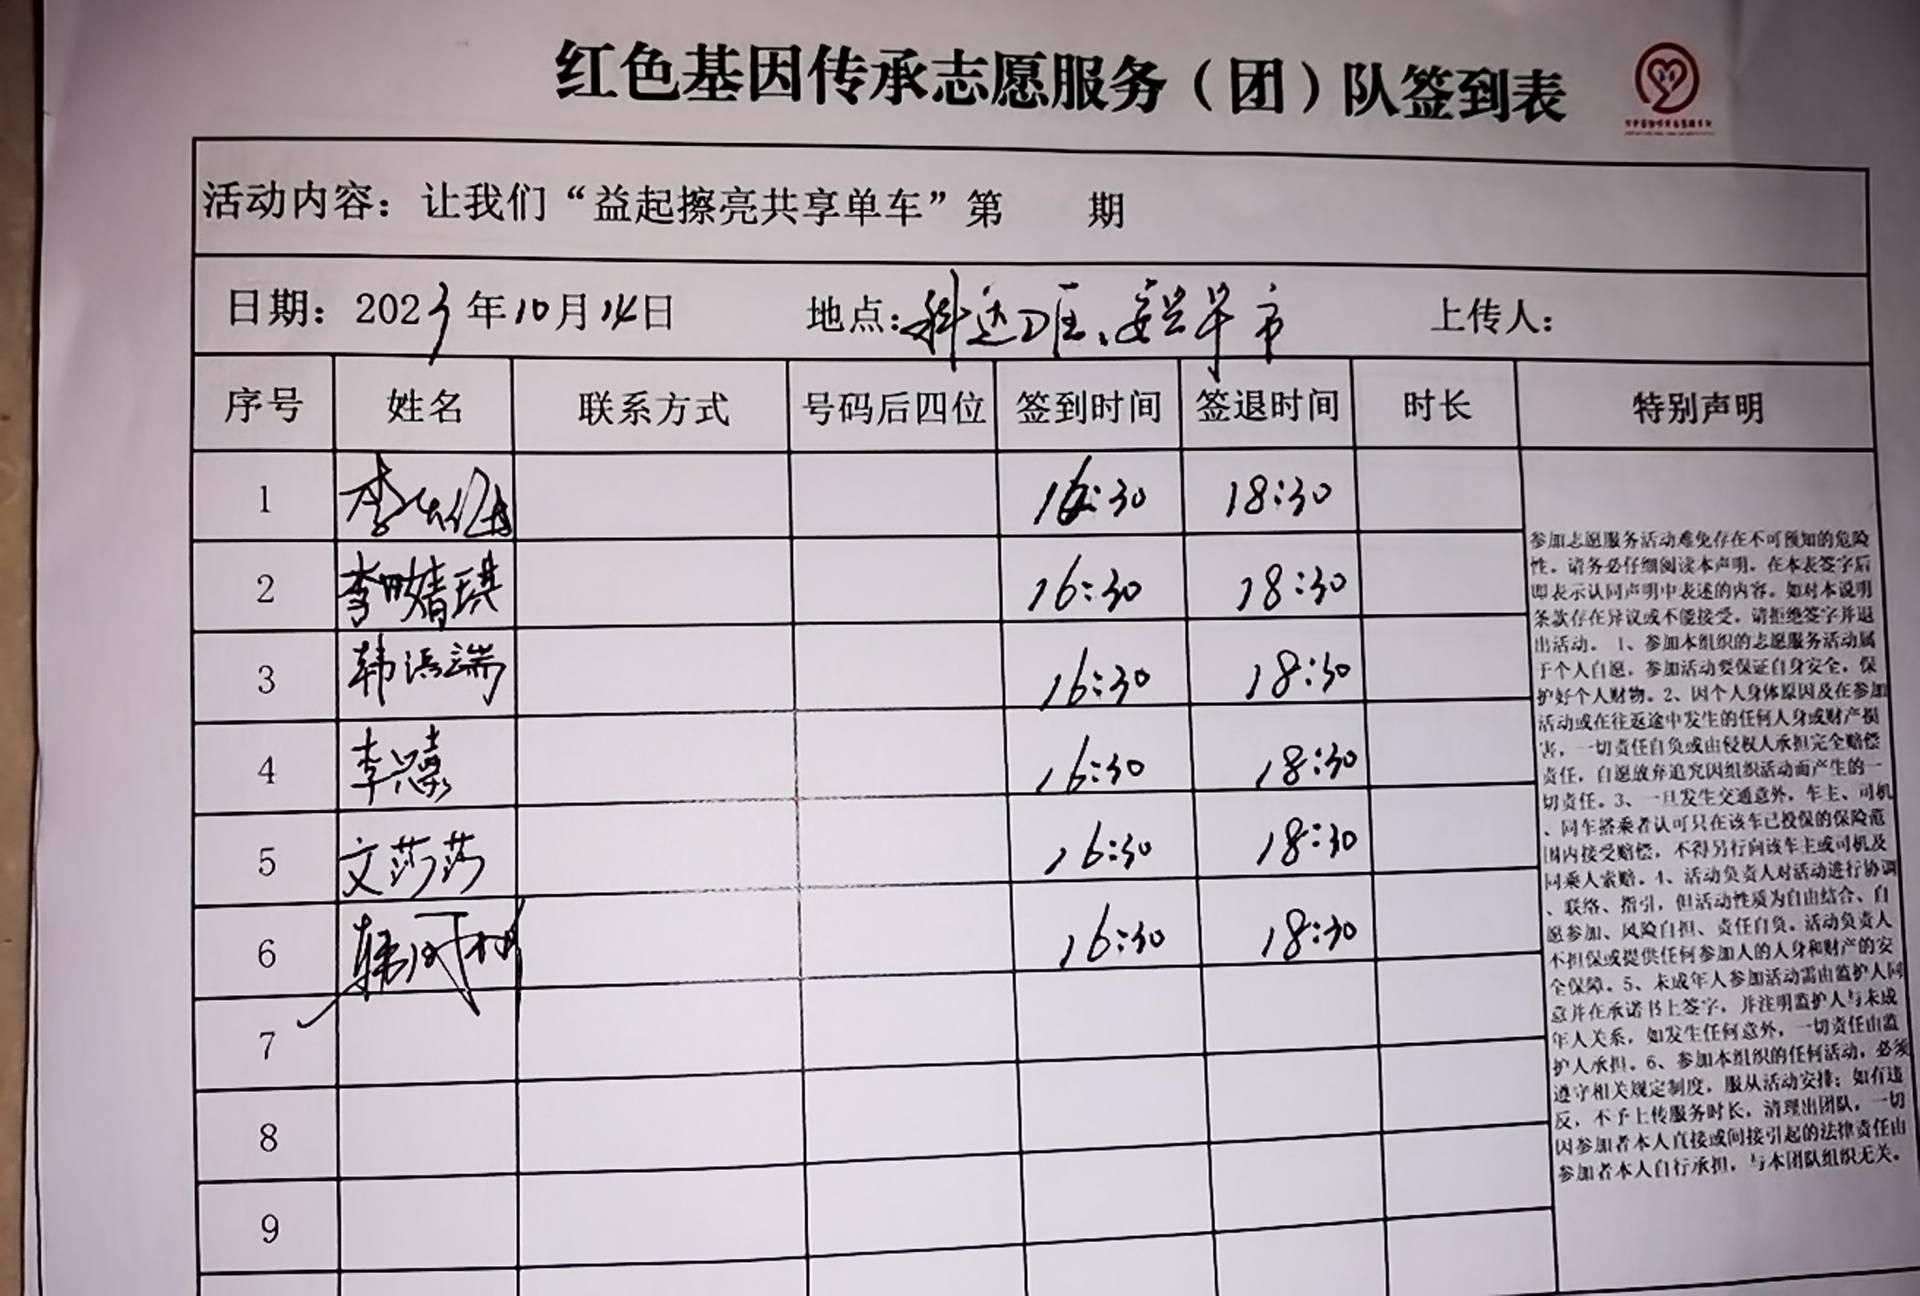 红色基因传承志愿服务(团)队签到表
活动内容：让我们“益起擦亮共享单车”第 期
日期：2023年10月14日 地点： 上传人：
序号 姓名 联系方式 号码后四位 签到时间 签退时间 时长 特别声明
1 李 16:30 18:30
2 李 婧琪 16:30 18:30
3 韩 端 16:30 18:30
4 李 16:30 18:30
5 文莎莎 16:30 18:30
6 韩 16:30 18:30
7
8
9
参加志愿服务活动难免存在不可预知的危险
性。请务必仔细阅读本声明，在本表签字后
即表示认同声明中表述的内容。如对本说明
条款存在异议或不能接受，请拒绝签字并退
出活动。 1、参加本组织的志愿服务活动属
于个人自愿，参加活动要保证自身安全，保
护好个人财物。2、因个人身体原因及在参加
活动或在往返途中发生的任何人身或财产损
害，一切责任自负或由侵权人承担完全赔偿
责任，自愿放弃追究因组织活动而产生的一
切责任。3、一旦发生交通意外，车主、司机
、同车搭乘者认可只在该车已投保的保险范
围内接受赔偿，不得另行向该车主或司机及
同乘人索赔。4、活动负责人对活动进行协调
、联络、指引，但活动性质为自由结合、自
愿参加、风险自担、责任自负。活动负责人
不担保或提供任何参加人的人身和财产的安
全保障。5、未成年人参加活动需由监护人同
意并在承诺书上签字，并注明监护人与未成
年人关系，如发生任何意外，一切责任由监
护人承担。6、参加本组织的任何活动，必须
遵守相关规定制度，服从活动安排；如有违
反，不予上传服务时长，清理出团队，一切
因参加者本人直接或间接引起的法律责任由
参加者本人自行承担，与本团队组织无关。